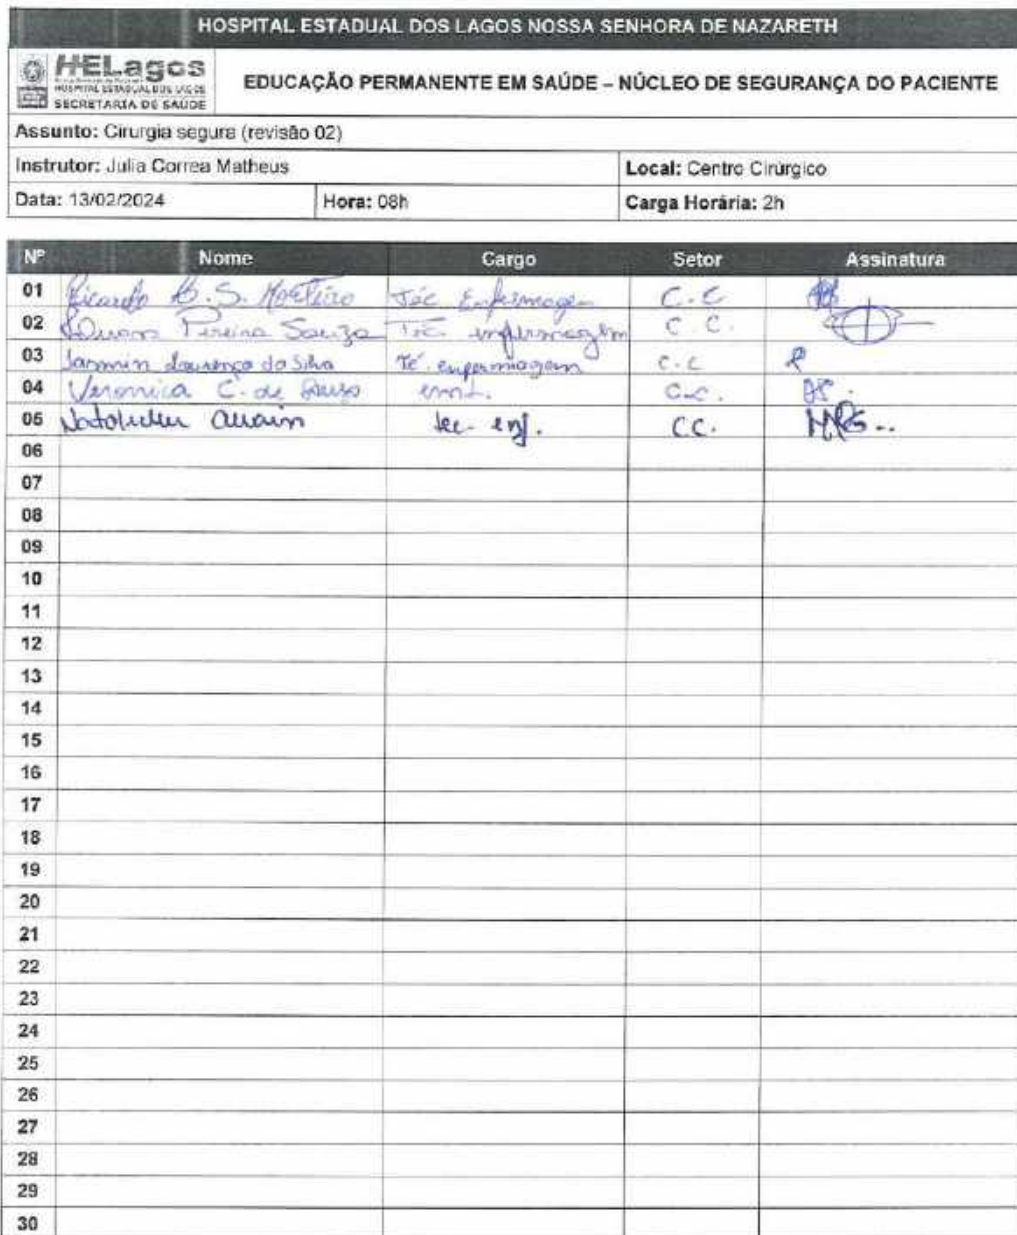 HOSPITAL ESTADUAL DOS LAGOS NOSSA SENHORA DE NAZARETH
HELagos
HOSPITAL ESTADUAL DOS LAGOS
SECRETARIA DE SAÚDE
EDUCAÇÃO PERMANENTE EM SAÚDE – NÚCLEO DE SEGURANÇA DO PACIENTE
Assunto: Cirurgia segura (revisão 02)
Instrutor: Julia Correa Matheus Local: Centro Cirúrgico
Data: 13/02/2024 Hora: 08h Carga Horária: 2h
Nº Nome Cargo Setor Assinatura
01 Ricardo S. Monteiro Téc Enfermagem C.C
02 Pereira Souza Téc. enfermagem C.C.
03 Iasmin Lourenço da Silva Té. enfermagem C.C
04 Veronica C. de Souza C.C.
05 tec. enf. CC.
06
07
08
09
10
11
12
13
14
15
16
17
18
19
20
21
22
23
24
25
26
27
28
29
30